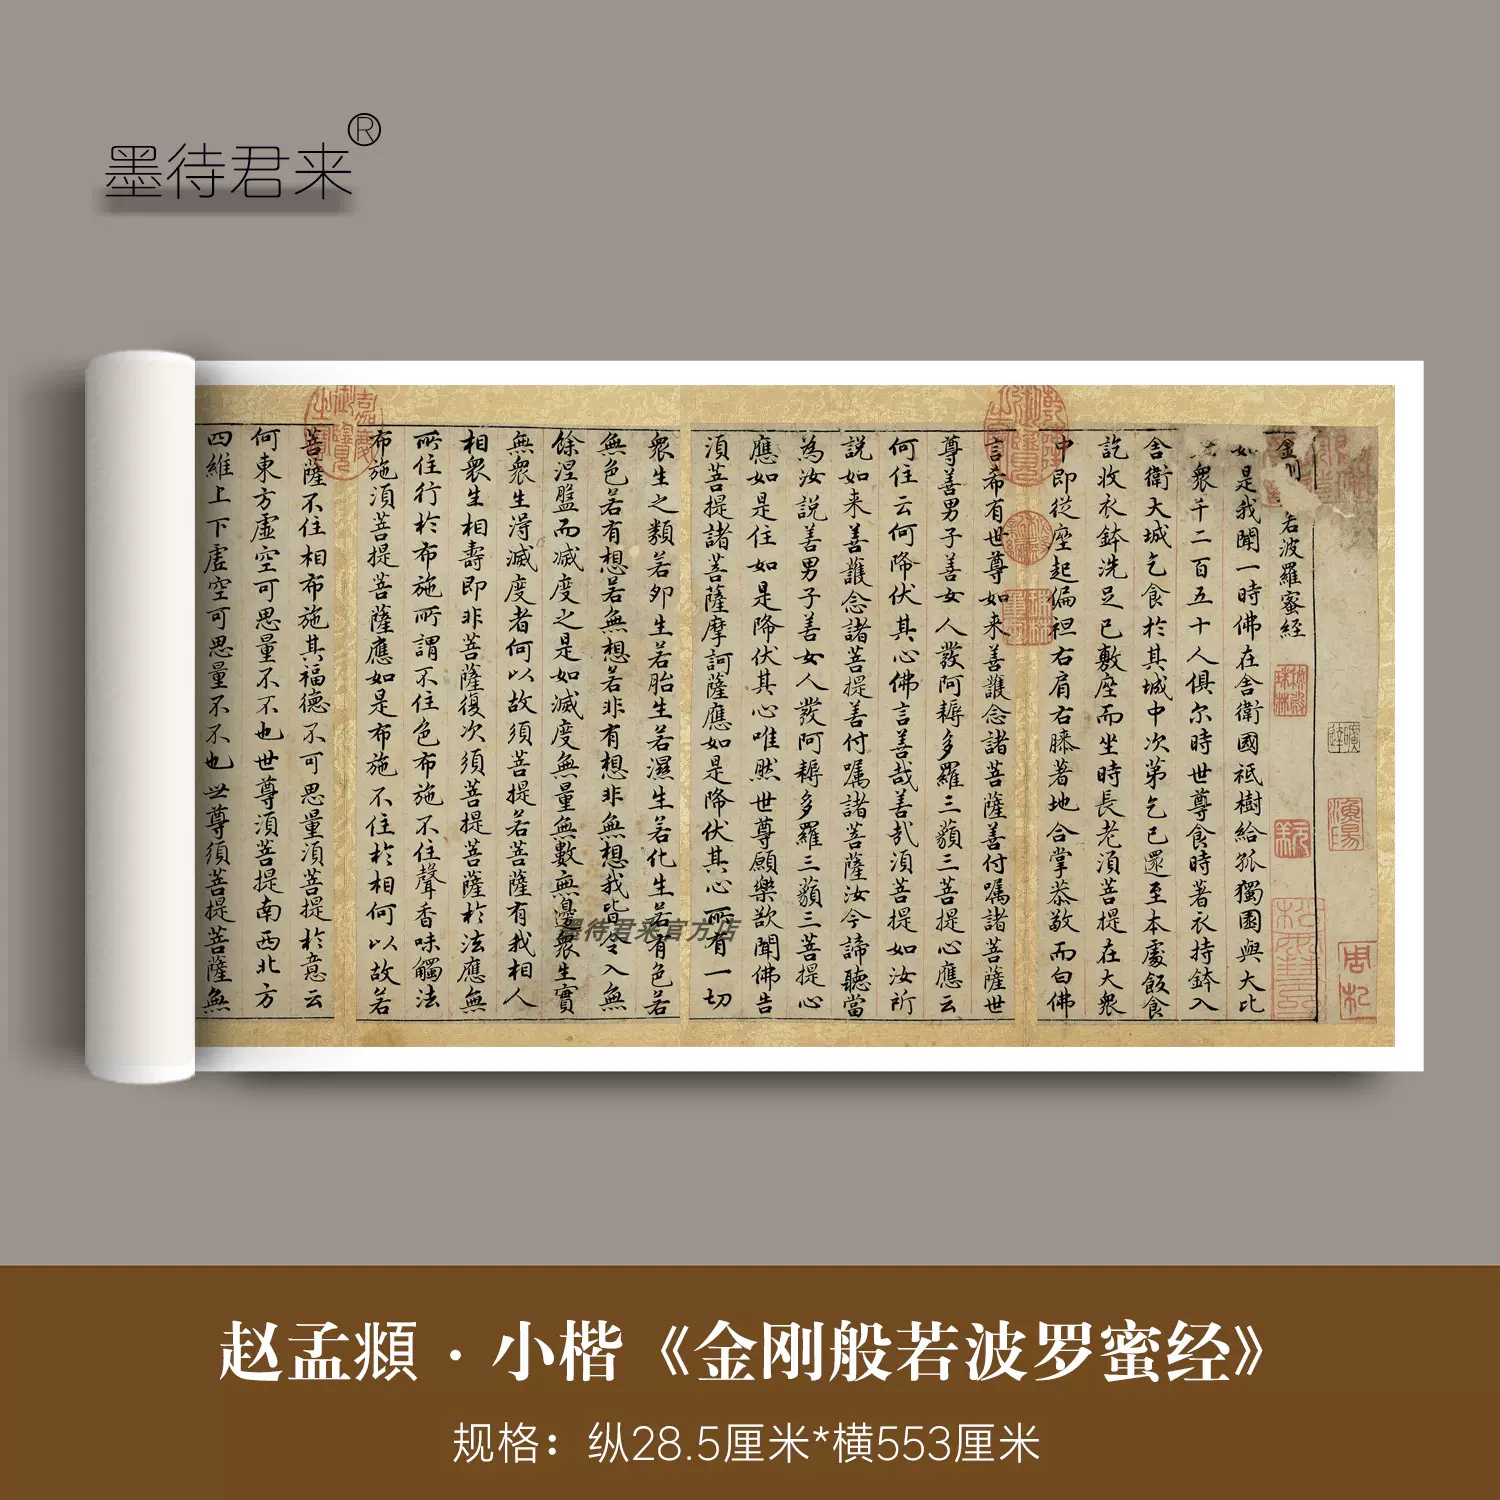 墨待君来®
金 若波羅蜜經
如是我聞一時佛在舍衛國祇樹給孤獨園與大比
衆千二百五十人俱尔時世尊食時著衣持鉢入
舍衛大城乞食於其城中次第乞已還至本處飯食
訖收衣鉢洗足已敷座而坐時長老湏菩提在大衆
中即從座起偏袒右肩右膝著地合掌恭敬而白佛
言希有世尊如来善護念諸菩薩善付嘱諸菩薩世
尊善男子善女人發阿耨多羅三藐三菩提心應云
何住云何降伏其心佛言善哉善哉湏菩提如汝所
説如来善護念諸菩提善付嘱諸菩薩汝今諦聽當
為汝説善男子善女人發阿耨多羅三藐三菩提心
應如是住如是降伏其心唯然世尊願樂欲聞佛告
湏菩提諸菩薩摩訶薩應如是降伏其心所有一切
衆生之類若卵生若胎生若濕生若化生若有色若
無色若有想若無想若非有想非無想我皆令入無
餘涅盤而滅度之是如滅度無量無數無邊衆生實
無衆生得滅度者何以故須菩提若菩薩有我相人
相衆生相壽即非菩薩復次須菩提菩薩於法應無
所住行於布施所謂不住色布施不住聲香味觸法
布施湏菩提菩薩應如是布施不住於相何以故若
菩薩不住相布施其福德不可思量湏菩提於意云
何東方虛空可思量不不也世尊湏菩提南西北方
四維上下虛空可思量不不也世尊須菩提菩薩無
墨待君来官方店
赵孟頫·小楷《金刚般若波罗蜜经》
规格：纵28.5厘米*横553厘米